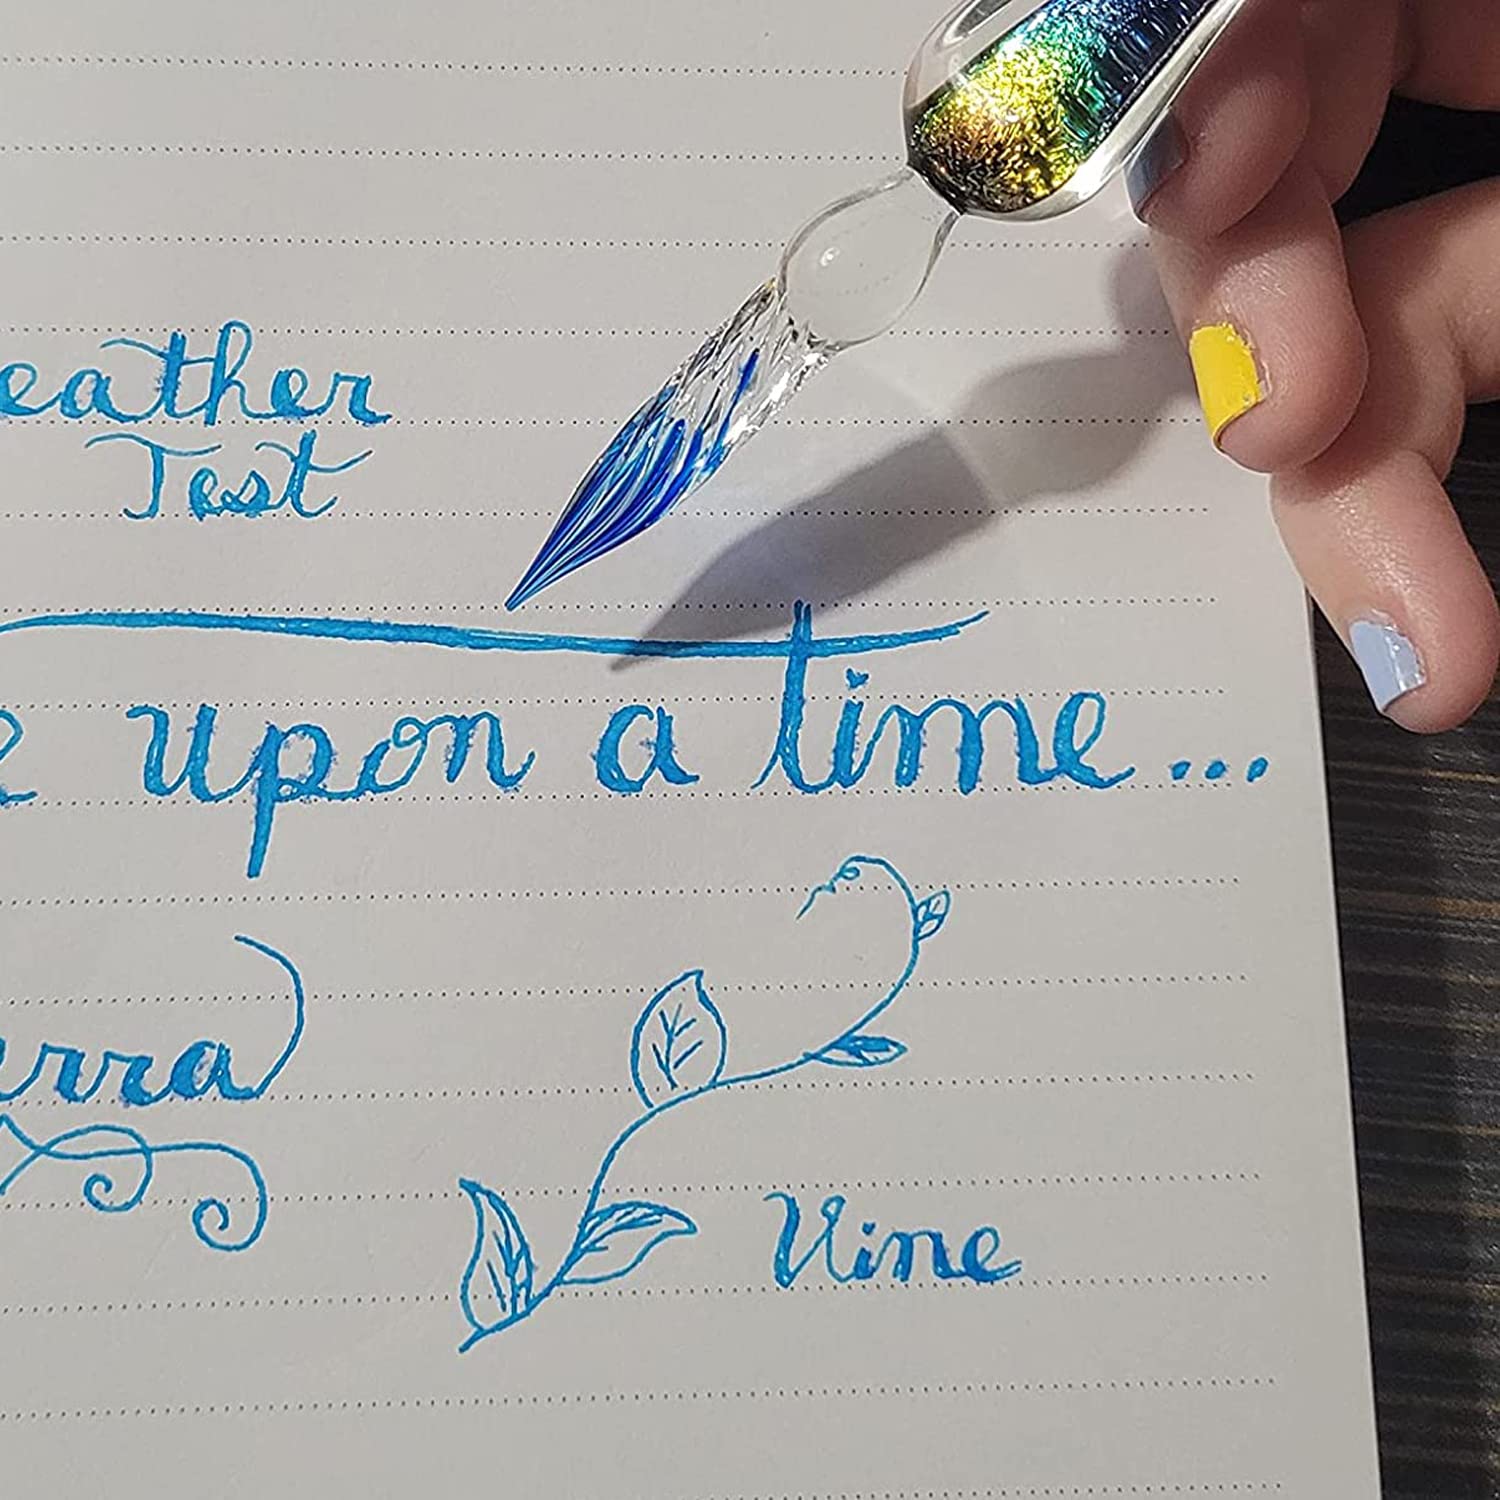 eather
Test
e upon a time...
erra
Vine